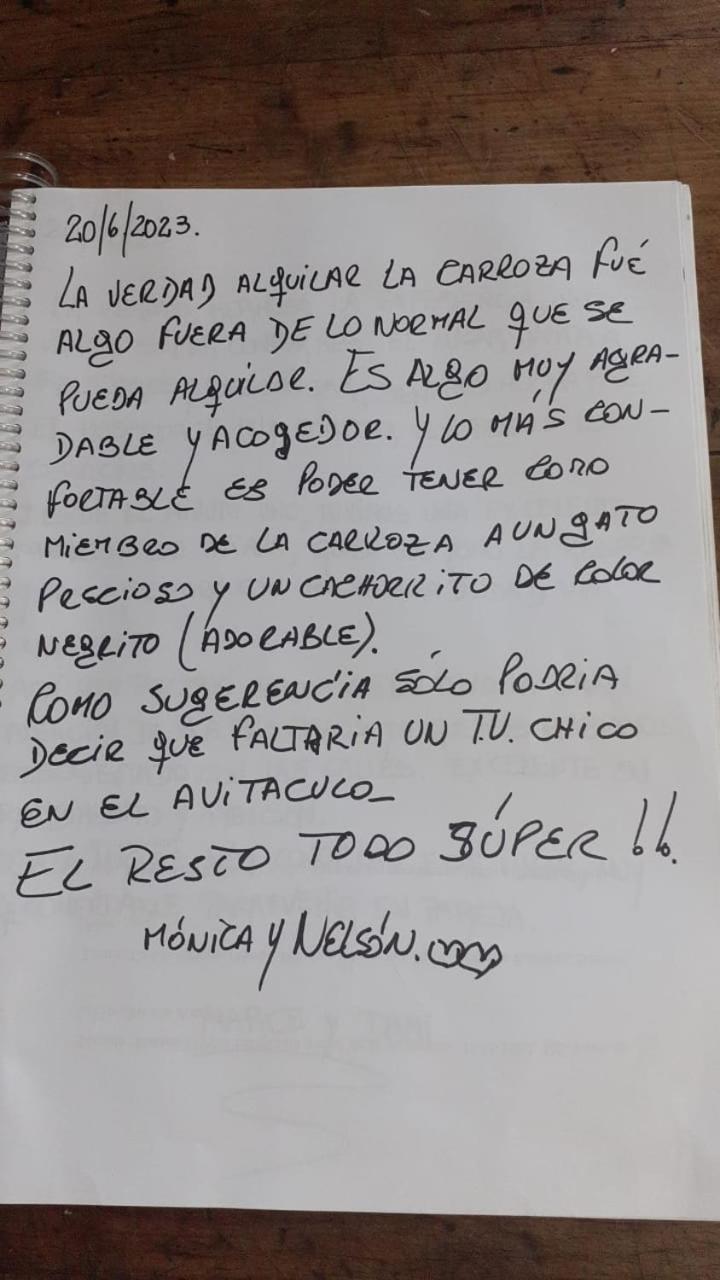 20/6/2023.
LA VERDAD ALQUILAR LA CARROZA FUÉ
ALGO FUERA DE LO NORMAL QUE SE
PUEDA ALQUILAR. ES ALGO MUY AGRA-
DABLE Y ACOGEDOR. Y LO MÁS CON-
FORTABLE ES PODER TENER COMO
MIEMBRO DE LA CARROZA A UN GATO
PRECIOSO Y UN CACHORRITO DE COLOR
NEGRITO (ADORABLE).
COMO SUGERENCIA SÓLO PODRIA
DECIR QUE FALTARIA UN T.V. CHICO
EN EL AVITACULO_
EL RESTO TODO SÚPER !!.
MÓNICA Y NELSÓN.